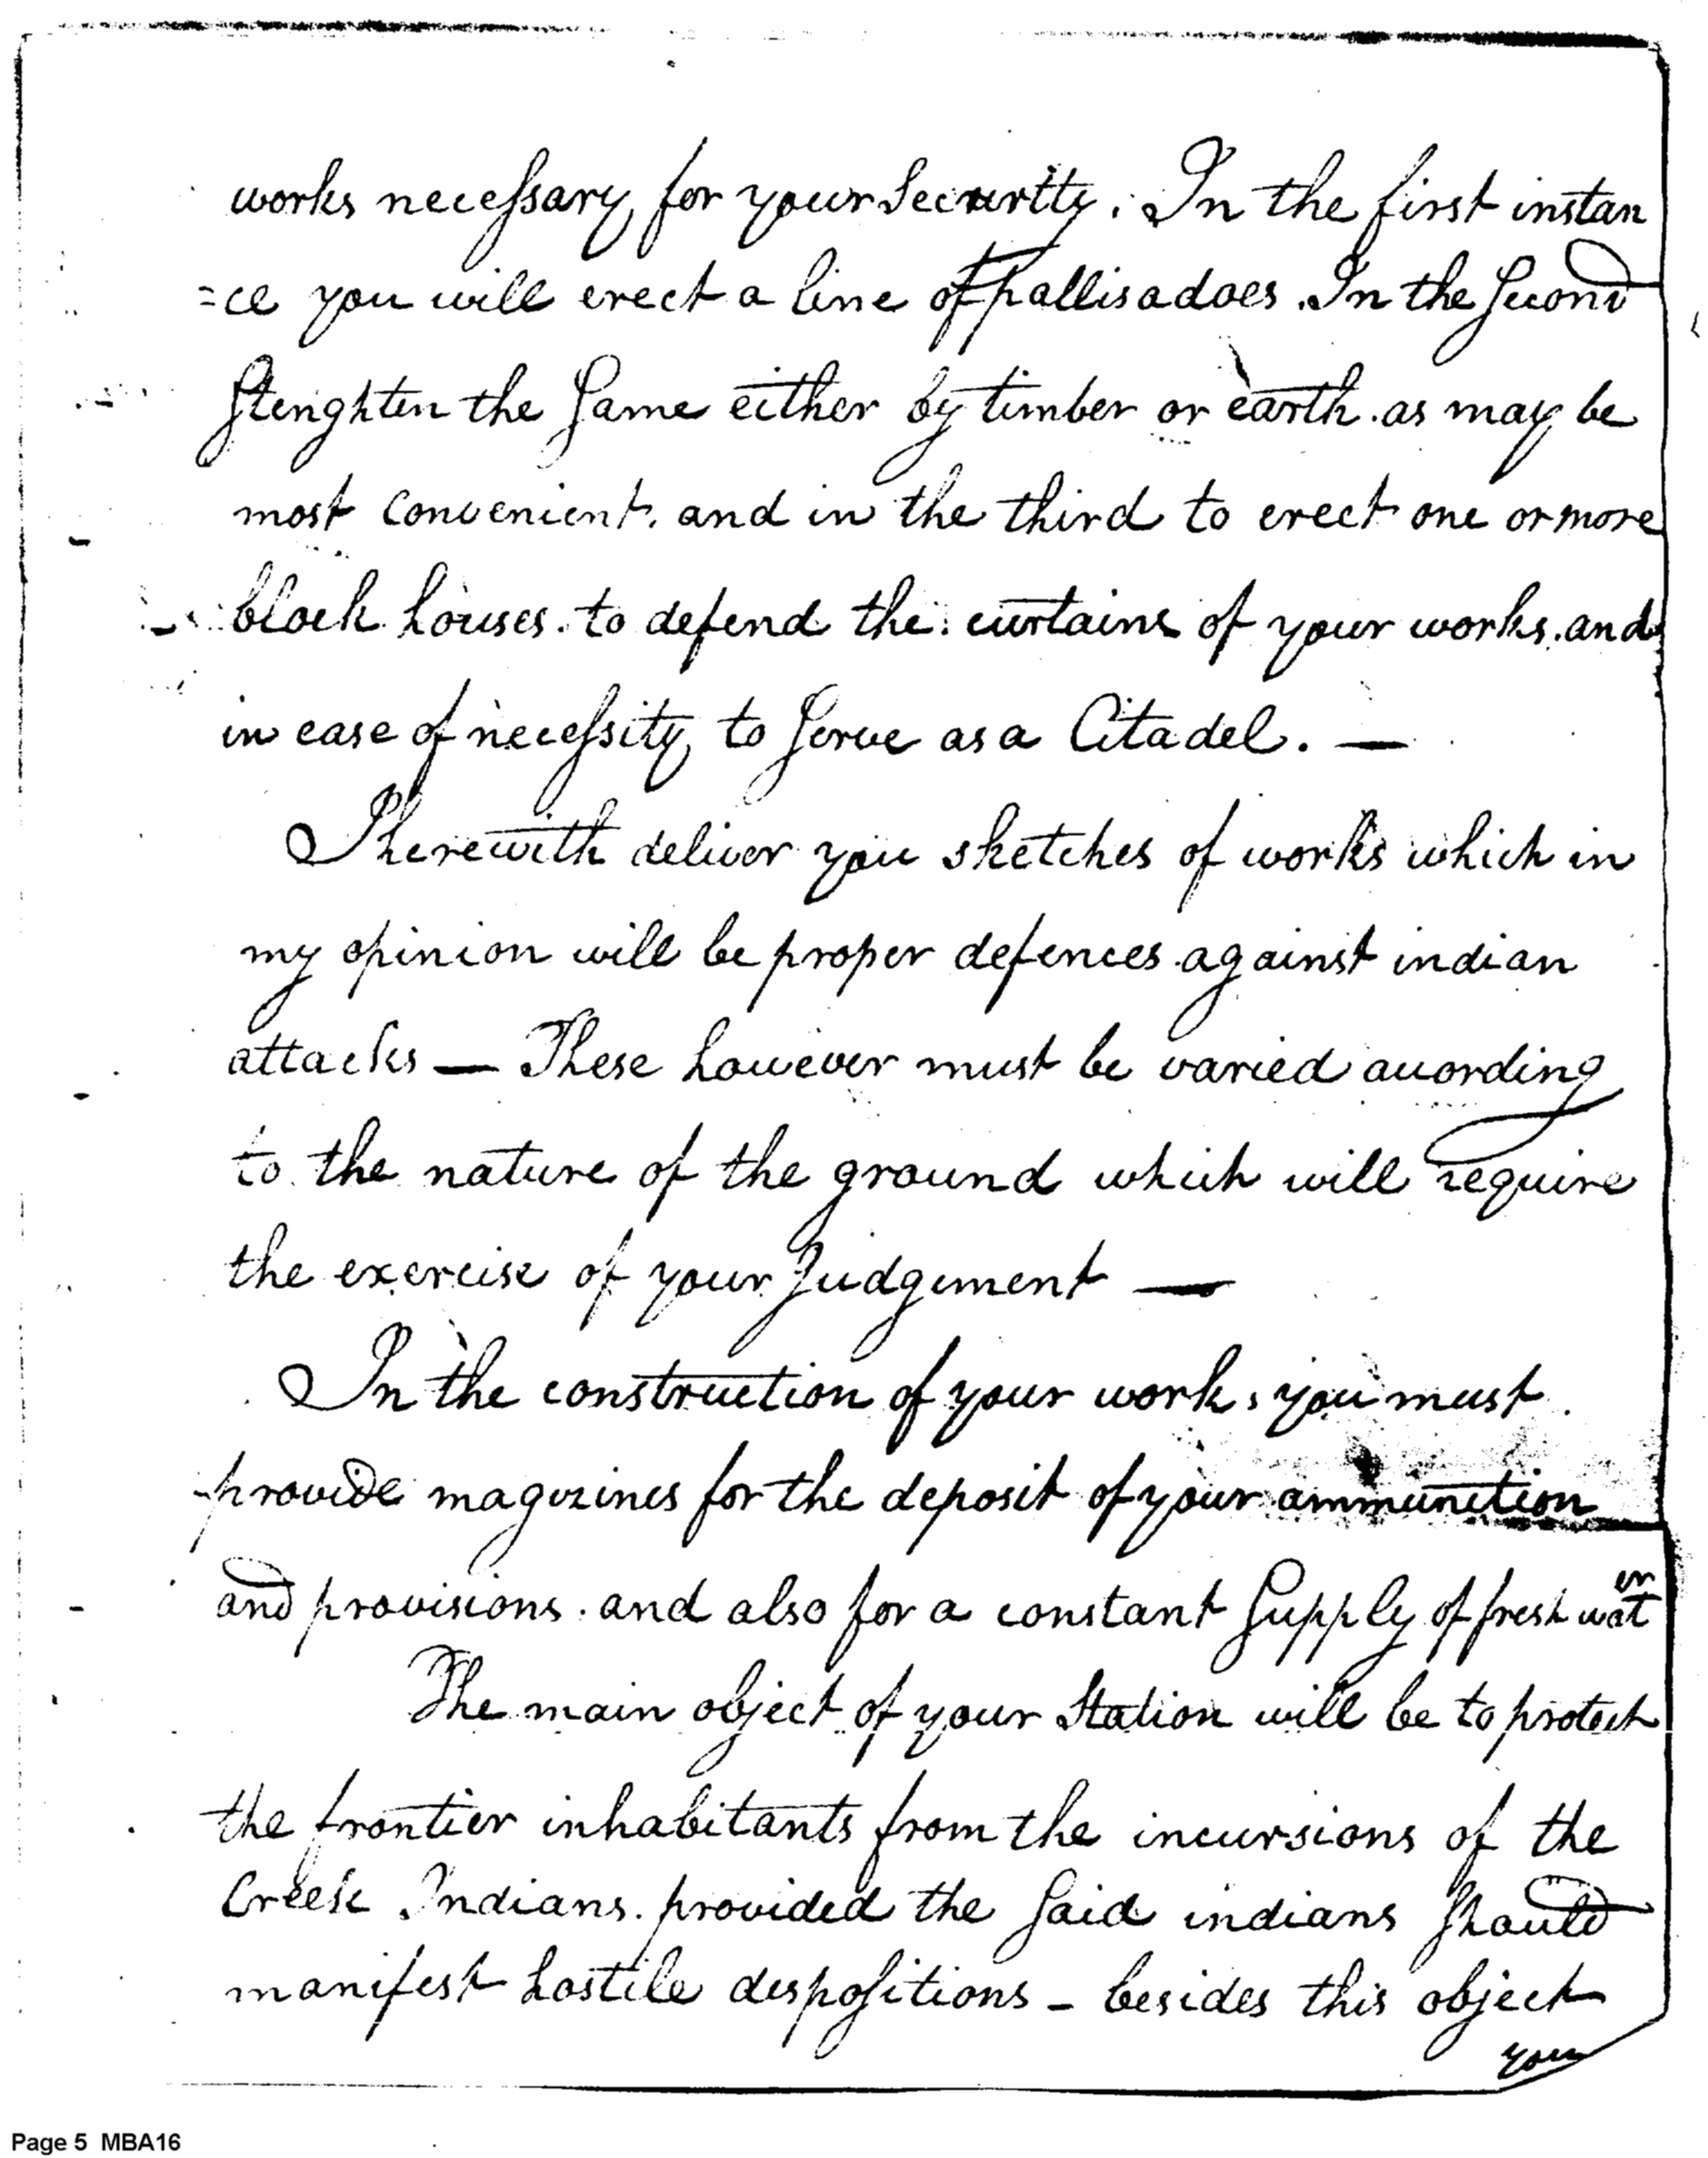 works necessary for your Securitty. In the first instan
=ce you will erect a line of pallisadoes. In the Second
Stenghten the Same either by timber or earth. as may be
most convenient. and in the third to erect one or more
block houses. to defend the curtains of your works. and
in case of necessity to Serve as a Citadel. —
I herewith deliver you sketches of works which in
my opinion will be proper defences against indian
attacks — These however must be varied according
to the nature of the ground which will require
the exercise of your Judgement —
In the construction of your work, you must
provide magazines for the deposit of your ammunition
and provisions. and also for a constant Supply of fresh water
The main object of your Station will be to protect
the frontier inhabitants from the incursions of the
Creek Indians. provided the Said indians Should
manifest hostile dispositions – besides this object
you
Page 5 MBA16